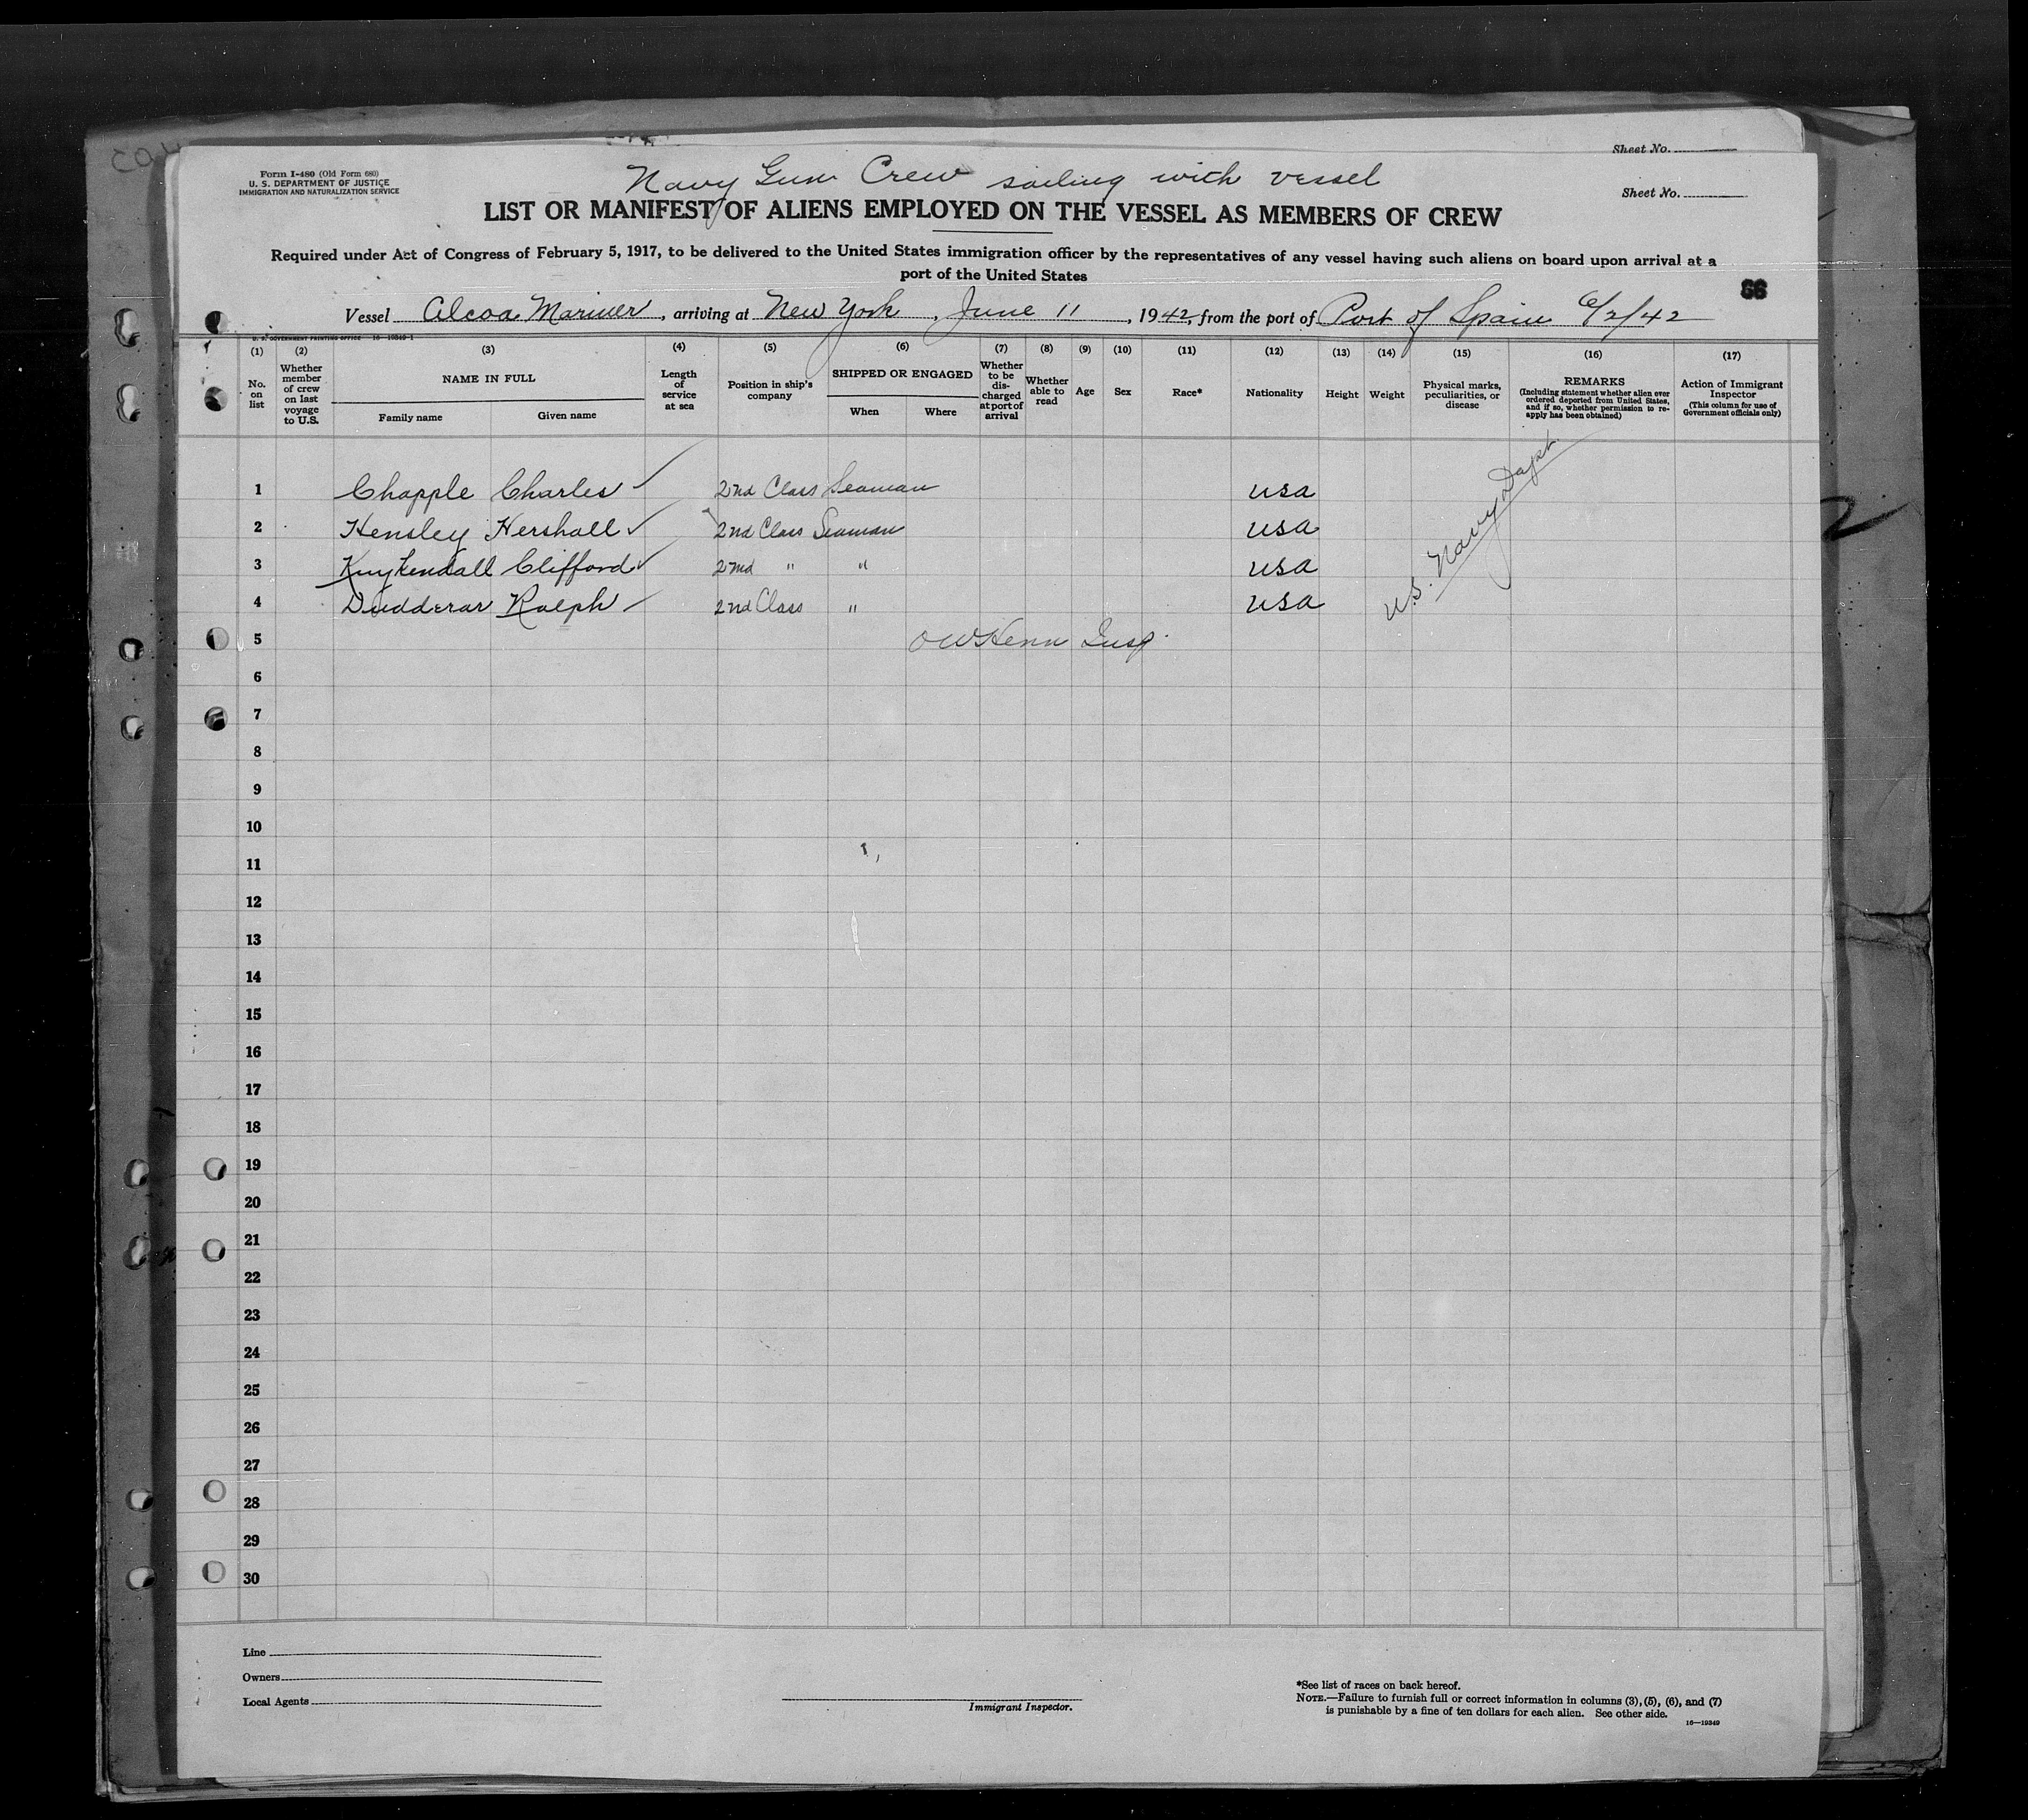 Sheet No.
Form I-480 (Old Form 680)
U. S. DEPARTMENT OF JUSTICE
IMMIGRATION AND NATURALIZATION SERVICE
Sheet No.
Navy Gun Crew sailing with vessel
LIST OR MANIFEST OF ALIENS EMPLOYED ON THE VESSEL AS MEMBERS OF CREW
Required under Act of Congress of February 5, 1917, to be delivered to the United States immigration officer by the representatives of any vessel having such aliens on board upon arrival at a
port of the United States
66
Vessel Alcoa Mariner, arriving at New York, June 11, 1942, from the port of Port of Spain 6/2/42
U. S. GOVERNMENT PRINTING OFFICE 16—19349-1
(1) (2) (3) (4) (5) (6) (7) (8) (9) (10) (11) (12) (13) (14) (15) (16) (17)
No. on list
Whether member of crew on last voyage to U.S.
NAME IN FULL
Family name Given name
Length of service at sea
Position in ship's company
SHIPPED OR ENGAGED
When Where
Whether to be discharged at port of arrival
Whether able to read
Age
Sex
Race*
Nationality
Height
Weight
Physical marks, peculiarities, or disease
REMARKS
(Including statement whether alien ever ordered deported from United States, and if so, whether permission to reapply has been obtained)
Action of Immigrant Inspector
(This column for use of Government officials only)
1 Chapple Charles 2nd Class Seaman USA
2 Hensley Hershall 2nd Class Seaman USA
3 Kuykendall Clifford 2nd " " USA
4 Dudderar Ralph 2nd Class " USA
U.S. Navy Dept.
2
5 OW Henn Insp.
6
7
8
9
10
11
12
13
14
15
16
17
18
19
20
21
22
23
24
25
26
27
28
29
30
Line
Owners
Local Agents
Immigrant Inspector.
*See list of races on back hereof.
NOTE.—Failure to furnish full or correct information in columns (3), (5), (6), and (7)
is punishable by a fine of ten dollars for each alien. See other side.
16—19349